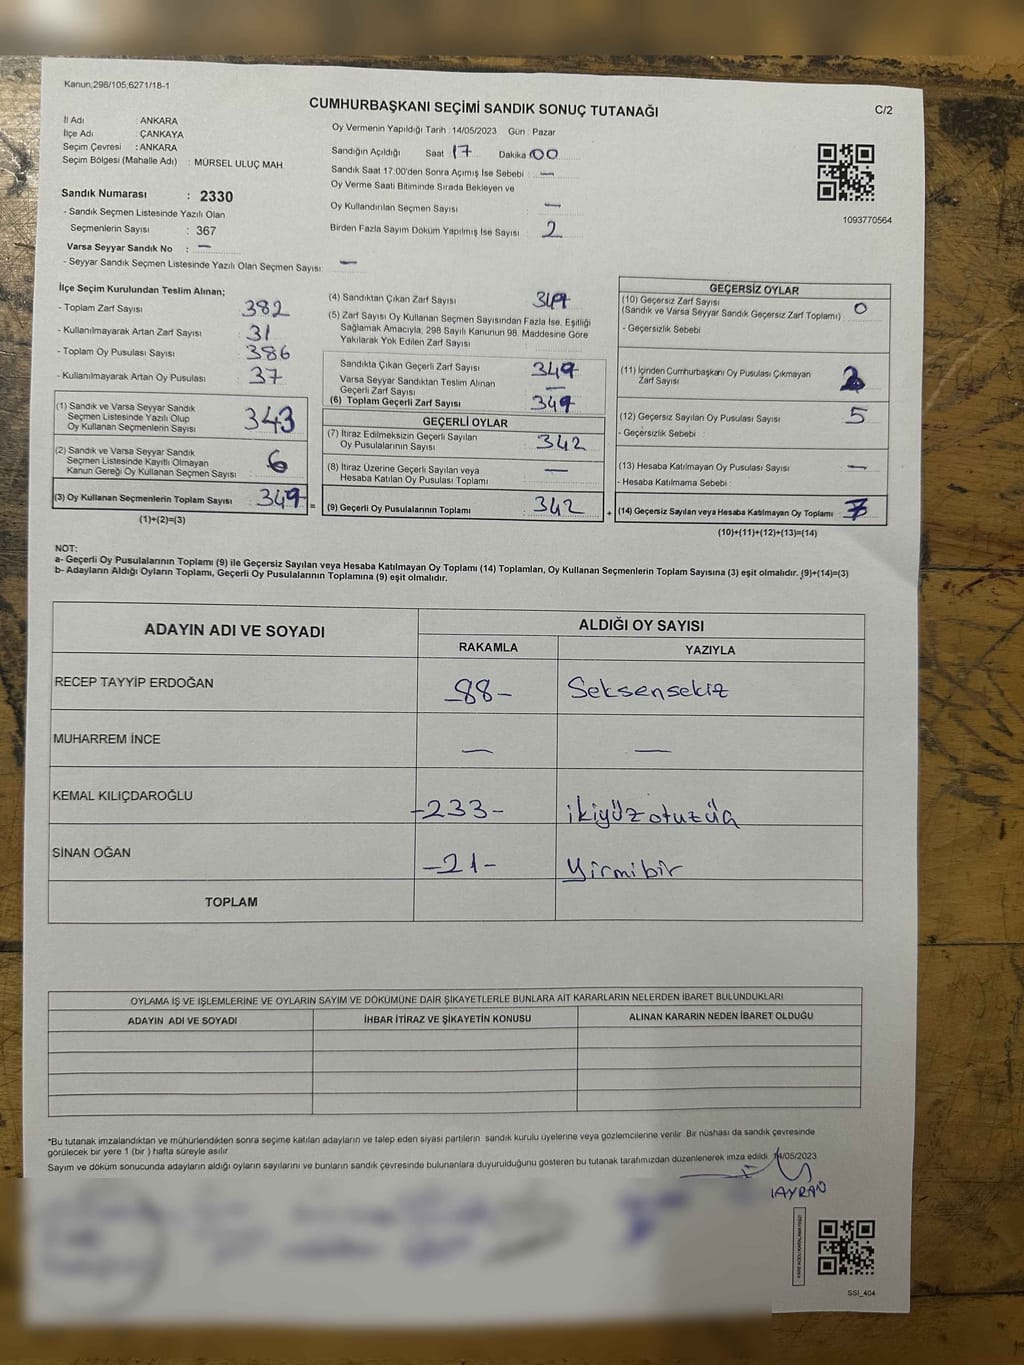 Kanun,298/105,6271/18-1
CUMHURBAŞKANI SEÇİMİ SANDIK SONUÇ TUTANAĞI
C/2
İl Adı : ANKARA
İlçe Adı : ÇANKAYA
Seçim Çevresi : ANKARA
Seçim Bölgesi (Mahalle Adı) : MÜRSEL ULUÇ MAH.
Sandık Numarası : 2330
- Sandık Seçmen Listesinde Yazılı Olan
Seçmenlerin Sayısı : 367
Varsa Seyyar Sandık No : —
- Seyyar Sandık Seçmen Listesinde Yazılı Olan Seçmen Sayısı: —
Oy Vermenin Yapıldığı Tarih : 14/05/2023 Gün : Pazar
Sandığın Açıldığı Saat 17 Dakika 00
Sandık Saat 17.00'den Sonra Açımış İse Sebebi : —
Oy Verme Saati Bitiminde Sırada Bekleyen ve
Oy Kullandırılan Seçmen Sayısı —
Birden Fazla Sayım Döküm Yapılmış İse Sayısı : 2
1093770564
İlçe Seçim Kurulundan Teslim Alınan;
- Toplam Zarf Sayısı : 382
- Kullanılmayarak Artan Zarf Sayısı : 31
- Toplam Oy Pusulası Sayısı : 386
- Kullanılmayarak Artan Oy Pusulası : 37
(1) Sandık ve Varsa Seyyar Sandık
Seçmen Listesinde Yazılı Olup
Oy Kullanan Seçmenlerin Sayısı : 343
(2) Sandık ve Varsa Seyyar Sandık
Seçmen Listesinde Kayıtlı Olmayan
Kanun Gereği Oy Kullanan Seçmen Sayısı : 6
(3) Oy Kullanan Seçmenlerin Toplam Sayısı : 349 =
(1)+(2)=(3)
(4) Sandıktan Çıkan Zarf Sayısı : 349
(5) Zarf Sayısı Oy Kullanan Seçmen Sayısından Fazla İse, Eşitliği
Sağlamak Amacıyla, 298 Sayılı Kanunun 98. Maddesine Göre
Yakılarak Yok Edilen Zarf Sayısı :
Sandıkta Çıkan Geçerli Zarf Sayısı : 349
Varsa Seyyar Sandıktan Teslim Alınan
Geçerli Zarf Sayısı : —
(6) Toplam Geçerli Zarf Sayısı : 349
GEÇERLİ OYLAR
(7) İtiraz Edilmeksizin Geçerli Sayılan
Oy Pusulalarının Sayısı : 342
(8) İtiraz Üzerine Geçerli Sayılan veya
Hesaba Katılan Oy Pusulası Toplamı : —
(9) Geçerli Oy Pusulalarının Toplamı : 342 +
GEÇERSİZ OYLAR
(10) Geçersiz Zarf Sayısı
(Sandık ve Varsa Seyyar Sandık Geçersiz Zarf Toplamı) : 0
- Geçersizlik Sebebi :
(11) İçinden Cumhurbaşkanı Oy Pusulası Çıkmayan
Zarf Sayısı : 2
(12) Geçersiz Sayılan Oy Pusulası Sayısı : 5
- Geçersizlik Sebebi :
(13) Hesaba Katılmayan Oy Pusulası Sayısı : —
- Hesaba Katılmama Sebebi :
(14) Geçersiz Sayılan veya Hesaba Katılmayan Oy Toplamı : 7
(10)+(11)+(12)+(13)=(14)
NOT:
a- Geçerli Oy Pusulalarının Toplamı (9) ile Geçersiz Sayılan veya Hesaba Katılmayan Oy Toplamı (14) Toplamları, Oy Kullanan Seçmenlerin Toplam Sayısına (3) eşit olmalıdır. (9)+(14)=(3)
b- Adayların Aldığı Oyların Toplamı, Geçerli Oy Pusulalarının Toplamına (9) eşit olmalıdır.
ADAYIN ADI VE SOYADI ALDIĞI OY SAYISI
RAKAMLA YAZIYLA
RECEP TAYYİP ERDOĞAN -88- Seksensekiz
MUHARREM İNCE — —
KEMAL KILIÇDAROĞLU -233- ikiyüzotuzüç
SİNAN OĞAN -21- Yirmibir
TOPLAM
OYLAMA İŞ VE İŞLEMLERİNE VE OYLARIN SAYIM VE DÖKÜMÜNE DAİR ŞİKAYETLERLE BUNLARA AİT KARARLARIN NELERDEN İBARET BULUNDUKLARI
ADAYIN ADI VE SOYADI İHBAR İTİRAZ VE ŞİKAYETİN KONUSU ALINAN KARARIN NEDEN İBARET OLDUĞU
*Bu tutanak imzalandıktan ve mühürlendikten sonra seçime katılan adayların ve talep eden siyasi partilerin sandık kurulu üyelerine veya gözlemcilerine verilir. Bir nüshası da sandık çevresinde
görülecek bir yere 1 (bir ) hafta süreyle asılır.
Sayım ve döküm sonucunda adayların aldığı oyların sayılarını ve bunların sandık çevresinde bulunanlara duyurulduğunu gösteren bu tutanak tarafımızdan düzenlenerek imza edildi. 14/05/2023
SSI_404